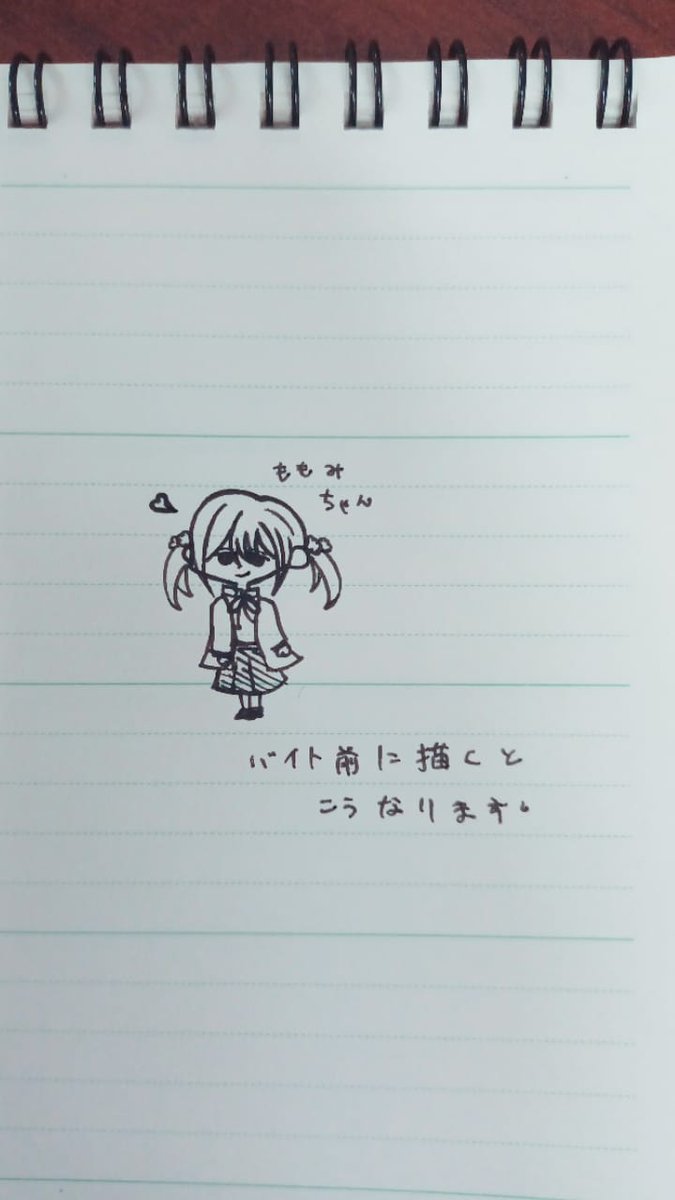 ももみ
ちゃん
バイト前に描くと
こうなります。